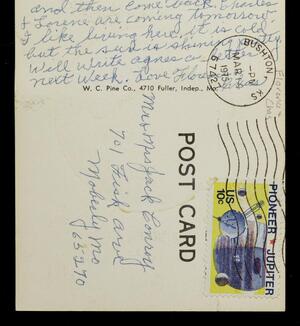 and then come back. Charles
& Lorene are coming tomorrow.
I like living here, it is cold
but the sun is shining
Will write agnes
next Week. Love
W. C. Pine Co., 4710 Fuller, Indep., Mo.
POST CARD
Mr & Mrs Jack Conroy
701 Fisk ave
Moberly Mo
65270
BUSHTON, KS
PM
MAR
1975
67427
PIONEER ★ JUPITER
US
10c